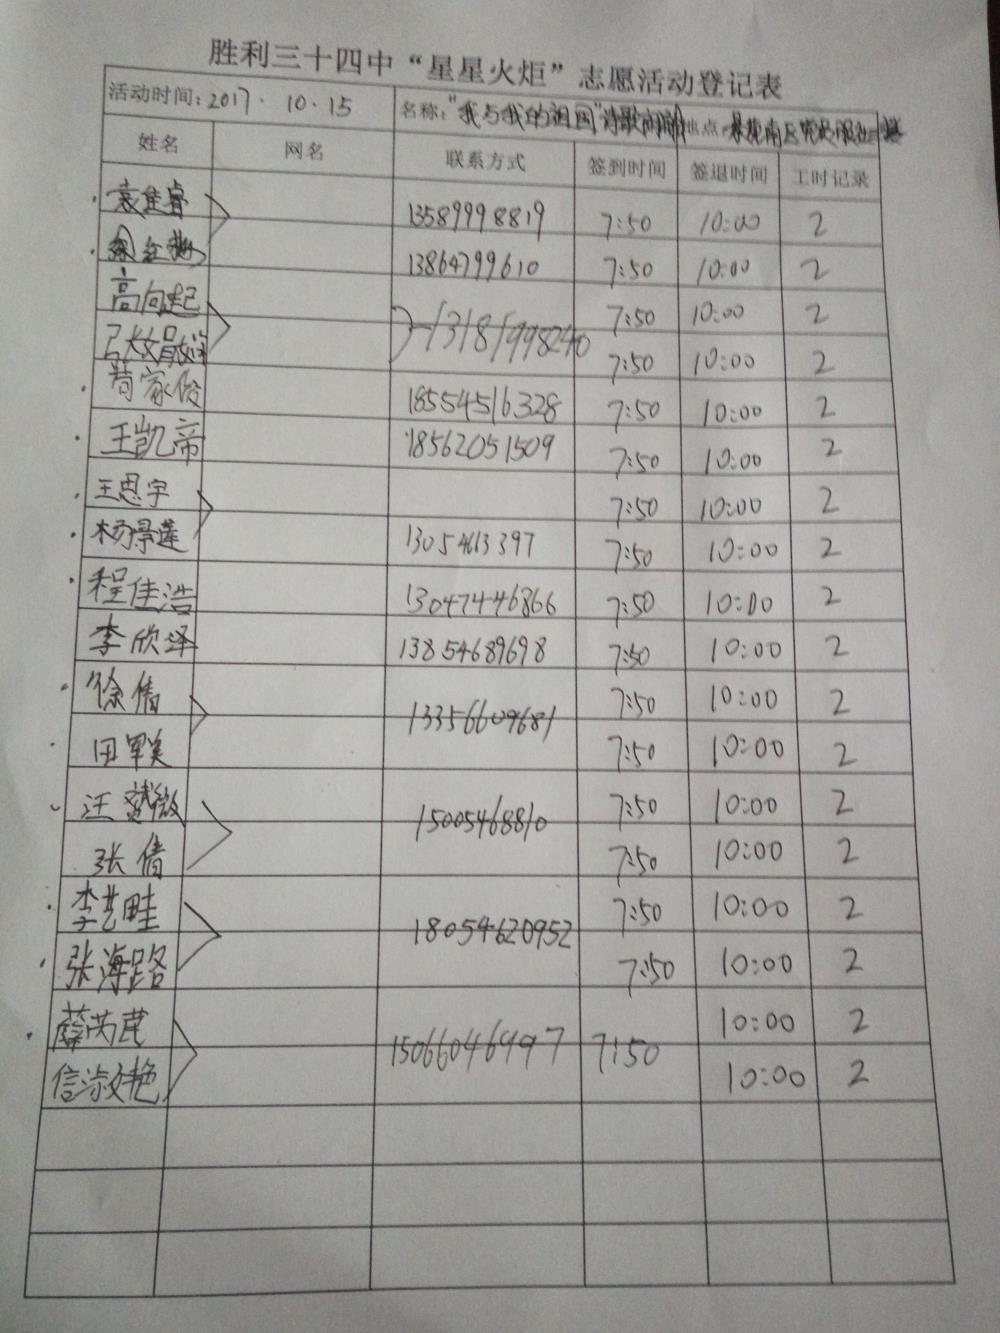 胜利三十四中“星星火炬”志愿活动登记表
活动时间：2017.10.15 名称：“我与我的祖国”诗歌朗诵 地点
姓名 网名 联系方式 签到时间 签退时间 工时记录
袁佳睿 13589998819 7:50 10:00 2
13864799610 7:50 10:00 2
高向起 7:50 10:00 2
13181998240 7:50 10:00 2
苟家俊 18554516328 7:50 10:00 2
王凯帝 18562051509 7:50 10:00 2
王思宇 7:50 10:00 2
杨景莲 13054613397 7:50 10:00 2
程佳浩 13047446866 7:50 10:00 2
李欣泽 13854689698 7:50 10:00 2
徐倩 13356609681 7:50 10:00 2
田军美 7:50 10:00 2
汪赟微 15005468810 7:50 10:00 2
张倩 7:50 10:00 2
李艺畦 18054620952 7:50 10:00 2
张海路 7:50 10:00 2
薛芮芪 15066046997 7:50 10:00 2
信淑艳 10:00 2